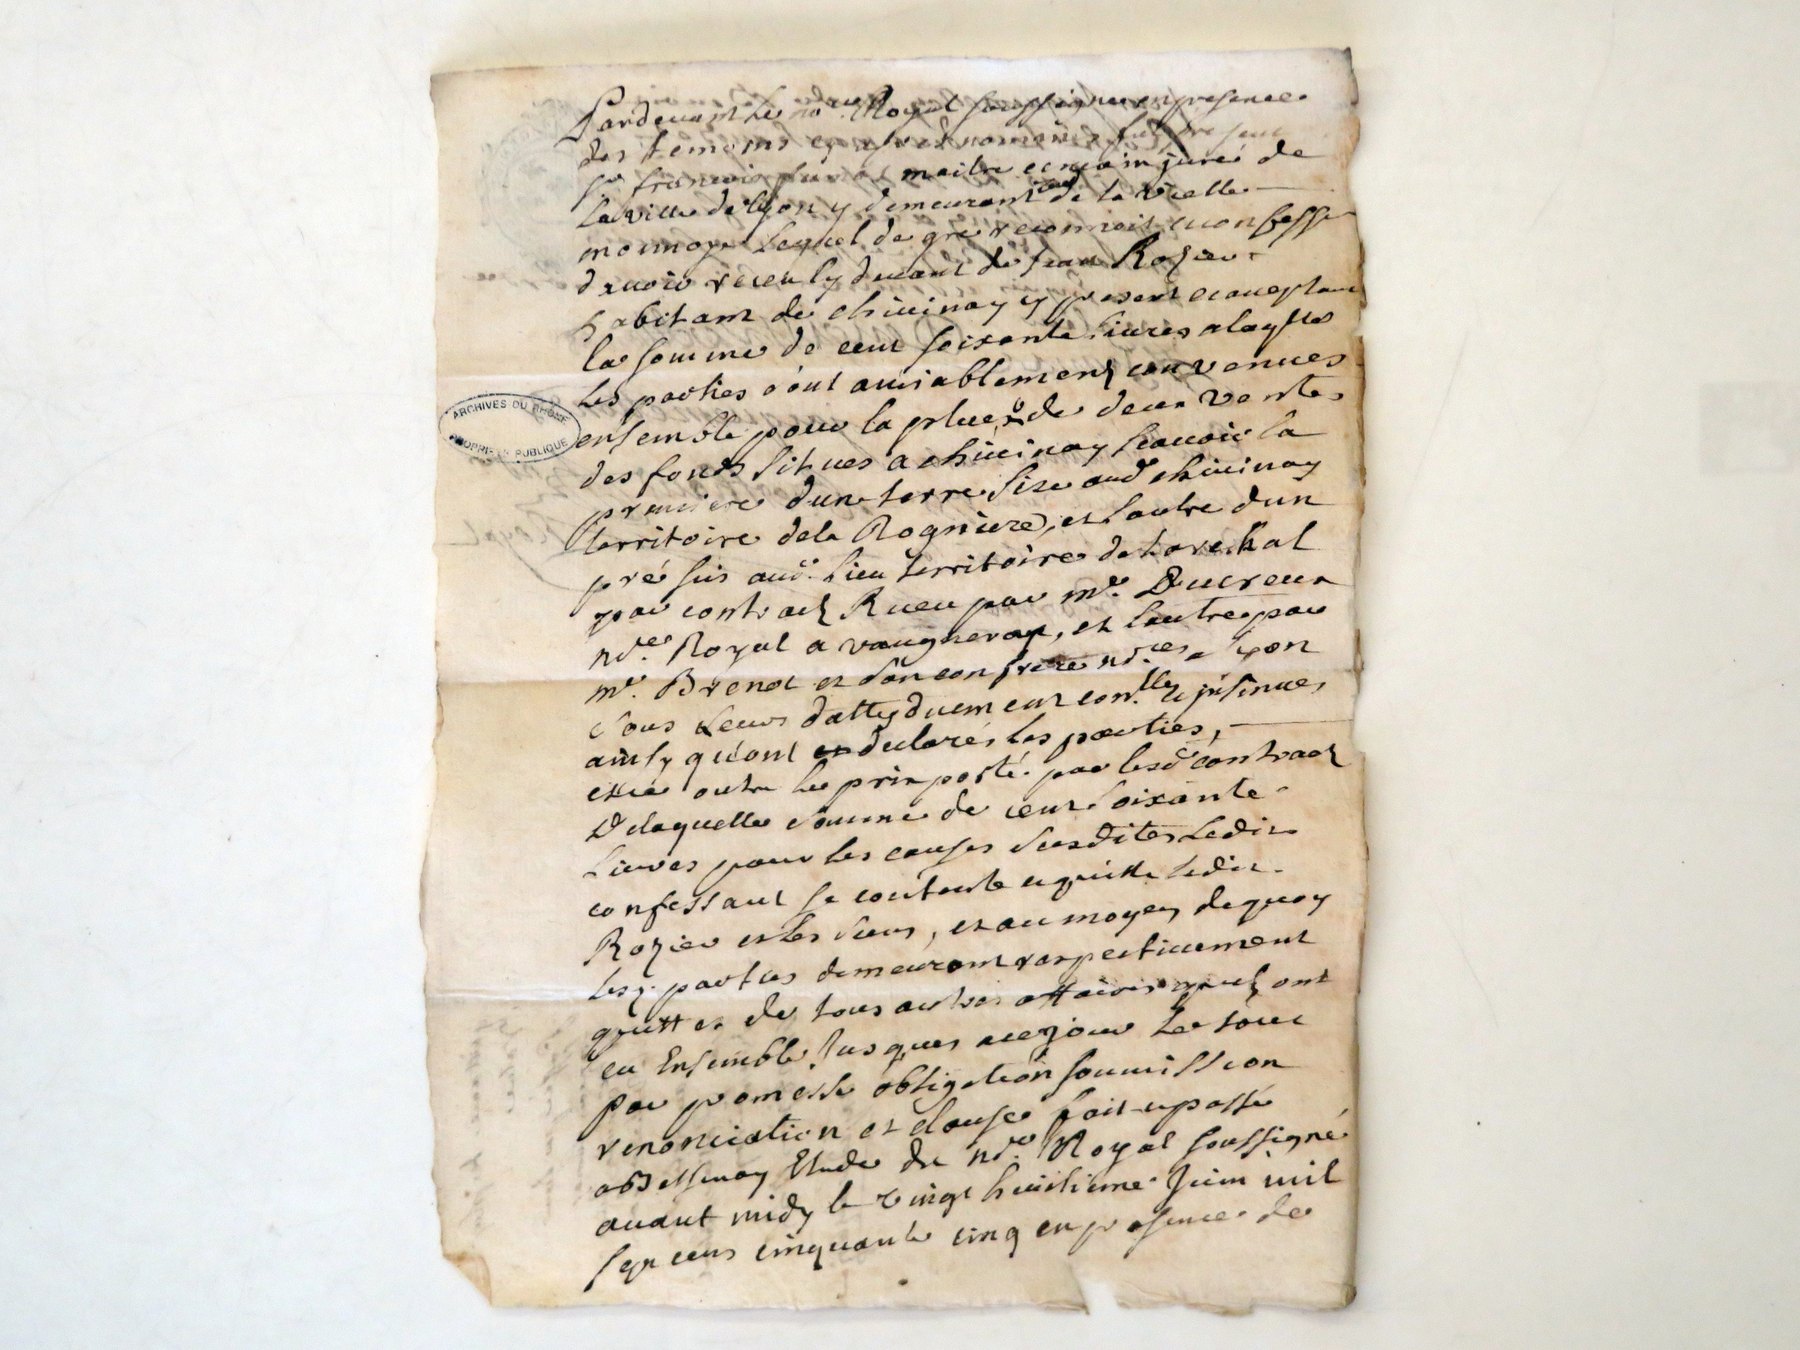 Pardevant le no.re Royal soussigné en presence
des temoins cy apres nommés fut present
Sr. francois maitre ecrivain juré de
la ville de lyon y demeurant rue de la vieille
monnoye Lequel de gré reconnoit et confesse
d'avoir receu cy devant de Jean Rozier
habitant de chivinay y present et acceptant
la somme de cent soixante livres a laquelle
les parties s'ont amiablement convenues
ensemble pour la plue de deux ventes
des fonds situés a chivinay scavoir la
premiere d'une terre size aud. chivinay
territoire dela Rogniere, et lautre d'un
pré sis aud. lieu territoire de
par contract Receu par me. Ducreux
nore. Royal a vaugneray, et lautre par
me. Brenot et son confrere nores. a Lyon
sous leurs dattes duement con.lles et jnsinues
ainsy qu'ont declarés les parties,
et ce outre le prix porté par lesd. contract
De laquelle somme de cent soixante
Livres pour les causes susdites Ledit
confessant se contente et quitte ledit
Rozier et les siens, et au moyen de quoy
lesd. parties demeurent respectivement
quittes de tous autres affaires quelz ont
eu Ensemble Jusques a ce jour Le tout
par promesse obligation soumission
renonciation et clause fait et passé
a Bessenay Etude du nore. Royal soussigné
avant midy le vingt huitieme Juin mil
sept cens cinquante cinq en presence de
ARCHIVES DU RHONE
PROPRIETE PUBLIQUE